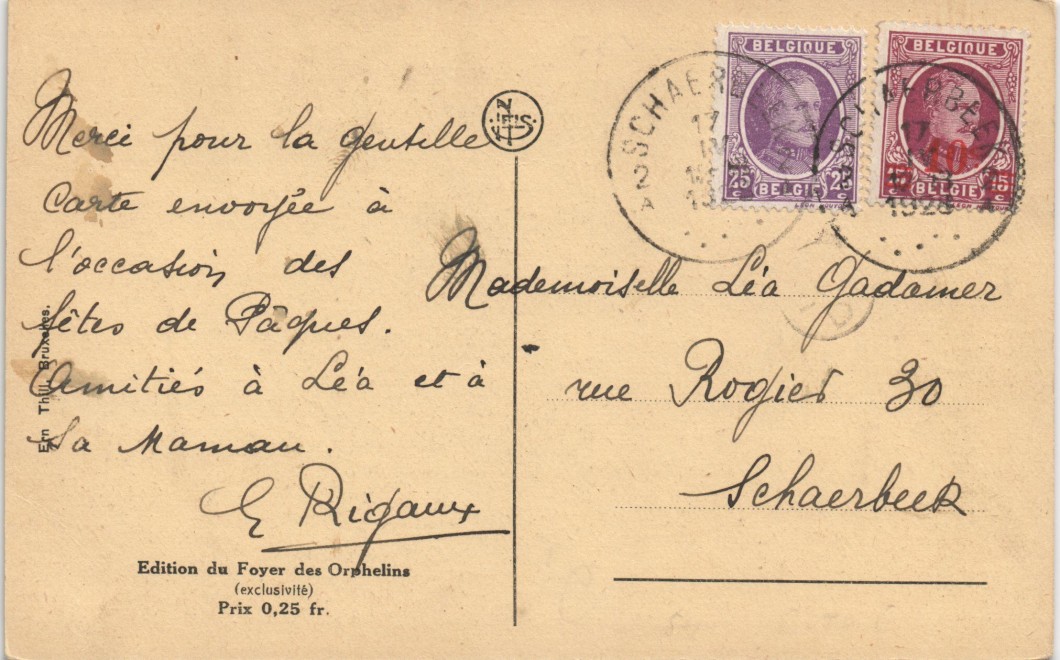 Merci pour la gentille
Carte envoyée à
l'occasion des
fêtes de Pâques.
Amitiés à Léa et à
Sa Maman.
E Rigaux
Edition du Foyer des Orphelins
(exclusivité)
Prix 0,25 fr.
Ern Thill, Bruxelles.
NELS
BELGIQUE
25 c 25 c
BELGIE
BELGIQUE
10c
15 c 15 c
BELGIE
SCHAERBEEK
2
A
17
SCHAERBEEK
A
17
1928
Mademoiselle Léa Gadamer
rue Rogier 30
Schaerbeek